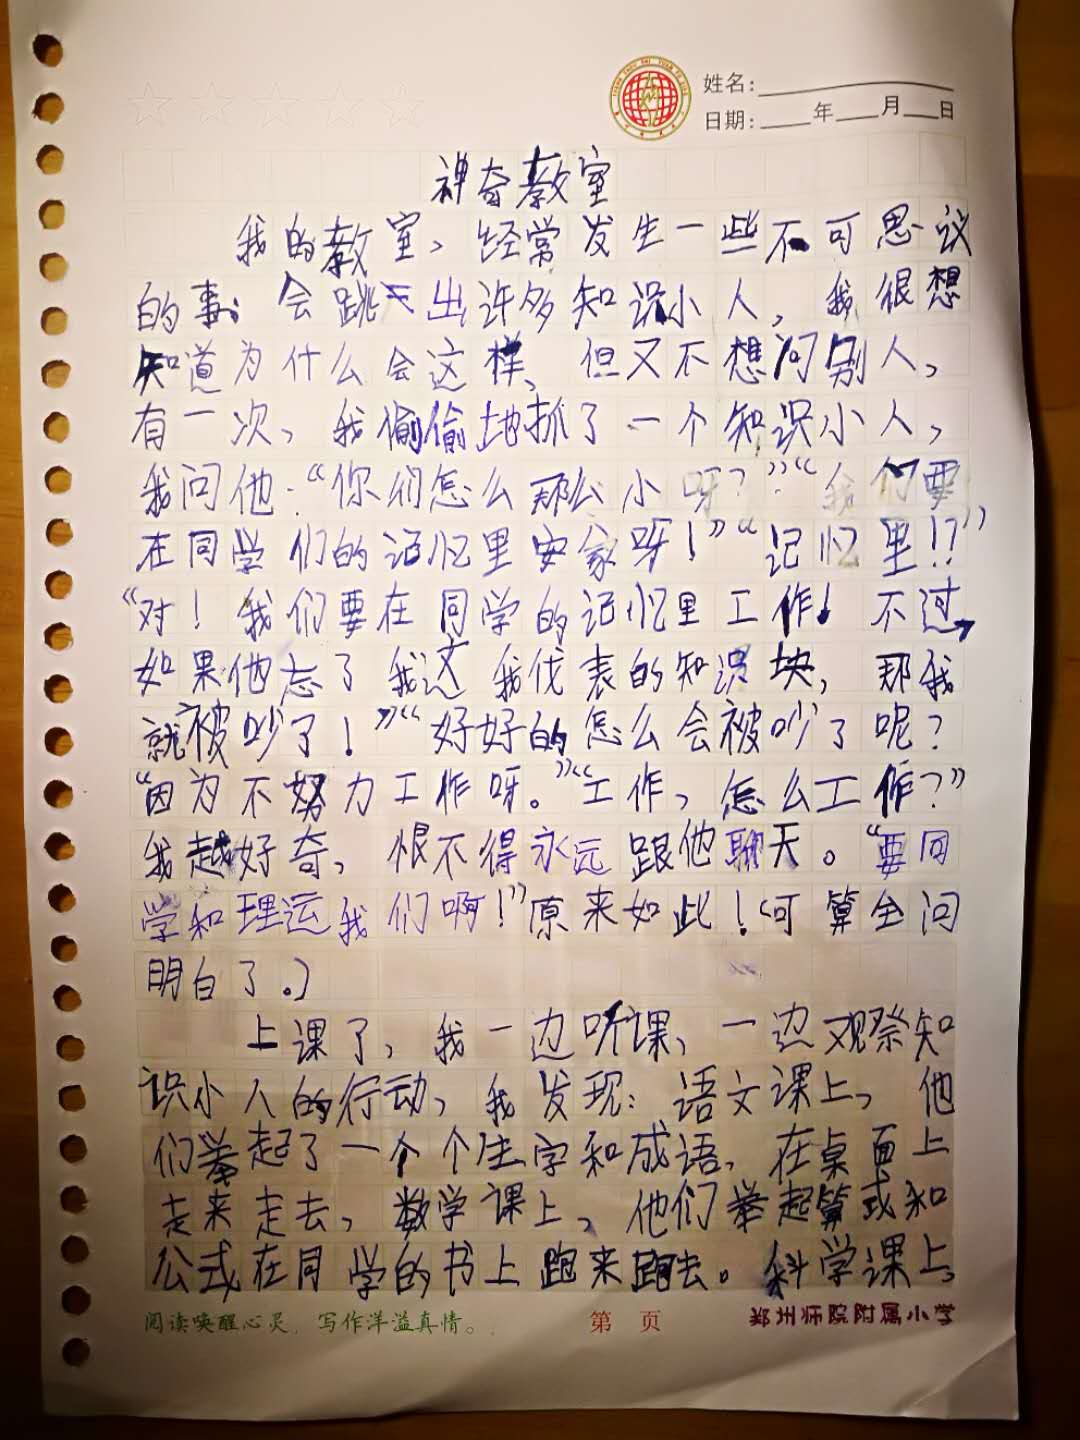 姓名:
日期: 年 月 日
神奇教室
我的教室，经常发生一些不可思议
的事。会跳出许多知识小人，我很想
知道为什么会这样，但又不想问别人，
有一次，我偷偷地抓了一个知识小人，
我问他：“你们怎么那么小呀？”“我们要
在同学们的记忆里安家呀！”“记忆里！？”
“对！我们要在同学的记忆里工作！不过，
如果他忘了我这我代表的知识块，那我
就被吵了！”“好好的怎么会被吵了呢？
“因为不努力工作呀。”“工作，怎么工作？”
我越好奇，恨不得永远跟他聊天。“要同
学和理运我们啊！”原来如此！（可算全问
明白了。）
上课了，我一边听课，一边观察知
识小人的行动，我发现：语文课上，他
们举起了一个个生字和成语，在桌面上
走来走去，数学课上，他们举起算式和
公式在同学的书上跑来跑去。科学课上，
阅读唤醒心灵，写作洋溢真情。
第 页
郑州师院附属小学